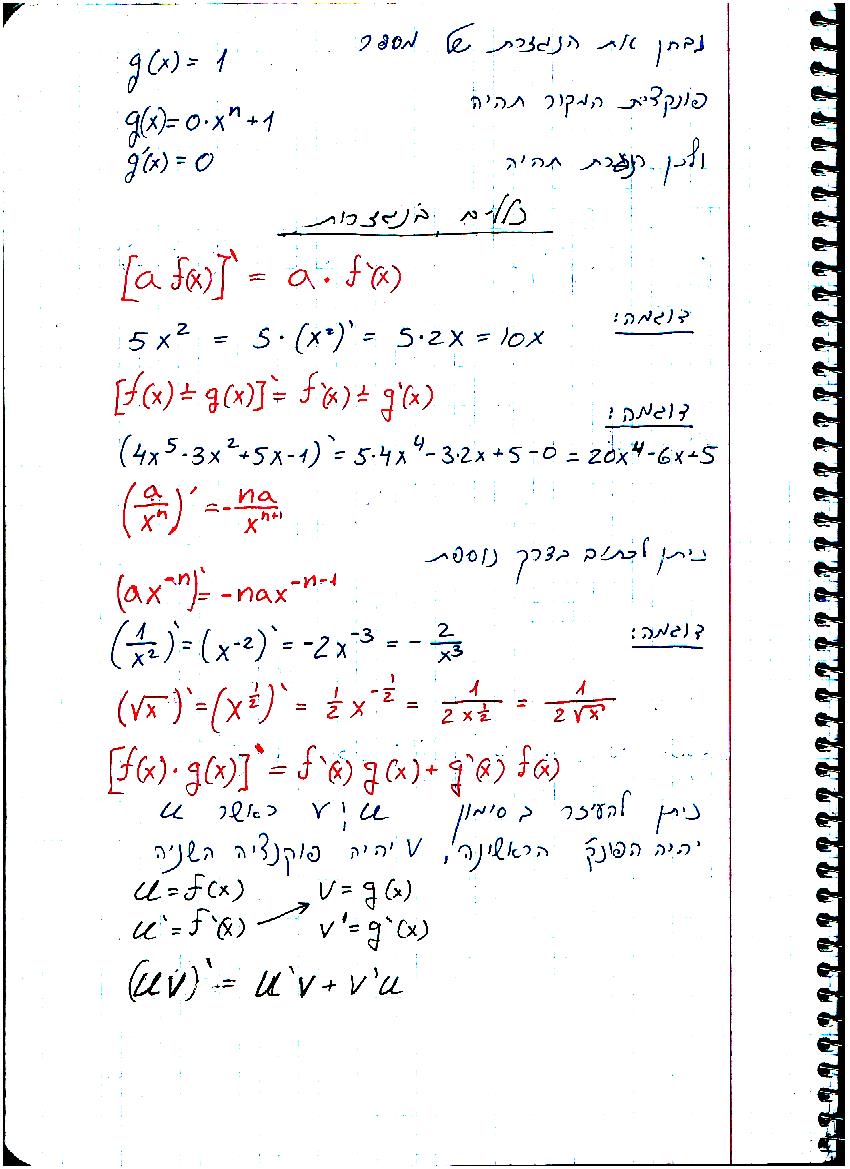 נבחן את הנגזרת של מספר g(x) = 1
פונקצית המקור תהיה g(x) = 0·xⁿ + 1
ולכן הנגזרת תהיה g'(x) = 0
כללים בנגזרות
[a f(x)]' = a · f'(x)
דוגמה: 5x² = 5·(x²)' = 5·2x = 10x
[f(x) ± g(x)]' = f'(x) ± g'(x)
דוגמה:
(4x⁵-3x²+5x-1)' = 5·4x⁴-3·2x+5-0 = 20x⁴-6x+5
(a/xⁿ)' = -na/xⁿ⁺¹
ניתן לכתוב בדרך נוספת
(ax⁻ⁿ)' = -nax⁻ⁿ⁻¹
דוגמה: (1/x²)' = (x⁻²)' = -2x⁻³ = -2/x³
(√x)' = (x^½)' = ½ x^-½ = 1/(2x^½) = 1/(2√x)
[f(x)·g(x)]' = f'(x) g(x) + g'(x) f(x)
ניתן להעיזר בסימון u ו v כאשר u
יהיה הפונק' הראשינה, v יהיה פוקנציה השניה
u = f(x) v = g(x)
u' = f'(x) v' = g'(x)
(uv)' = u'v + v'u